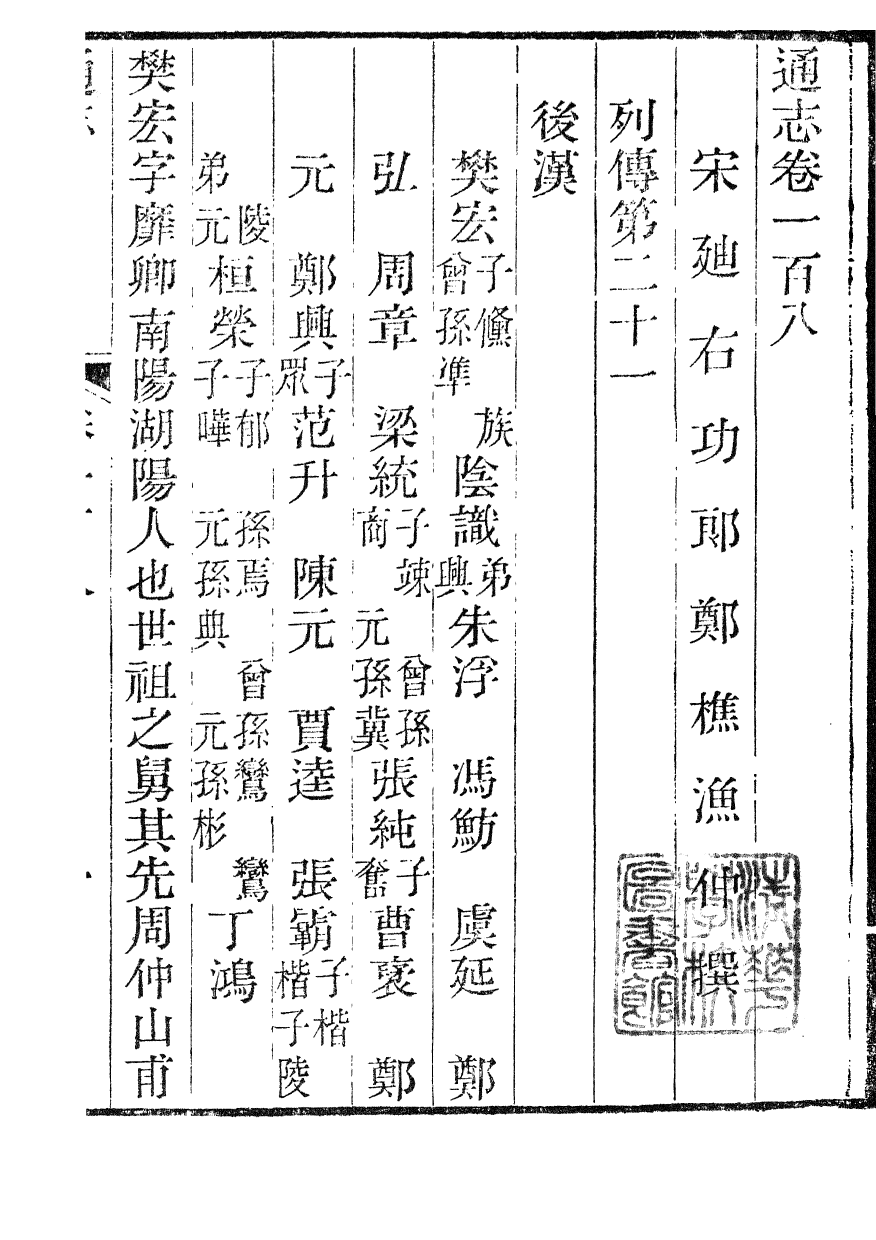 通志卷一百八
宋廸右功郎鄭樵漁仲撰
列傳第二十一
後漢
樊宏子儵族曾孫準陰識弟興朱浮馮魴虞延鄭
弘周章梁統子竦曾孫商元孫冀張純子奮曹襃鄭
元鄭興子眾范升陳元賈逵張霸子楷楷子陵
陵弟元桓榮子郁孫焉曾孫鸞鸞子嘩元孫典元孫彬丁鴻
樊宏字靡卿南陽湖陽人也世祖之舅其先周仲山甫
清華學校圖書館